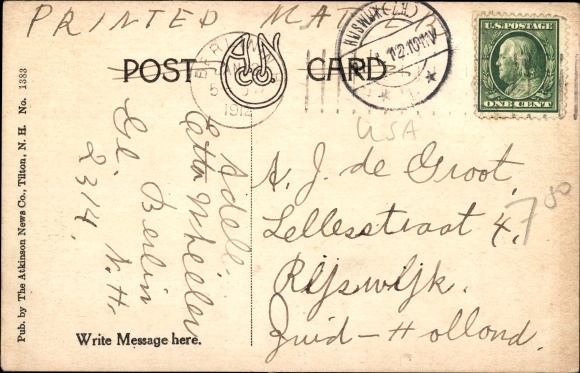 PRINTED MATTER
POST CARD
U.S. POSTAGE
ONE CENT
BERLIN
1912
RIJSWIJK (Z:H)
12.1011V
USA
Pub. by The Atkinson News Co., Tilton, N. H. No. 1383
Adell.
Etta Wheeler
Berlin
N.H.
2314.
A. J. de Groot,
Lellesstraat 4,
Rijswijk.
Zuid-Holland.
7
Write Message here.